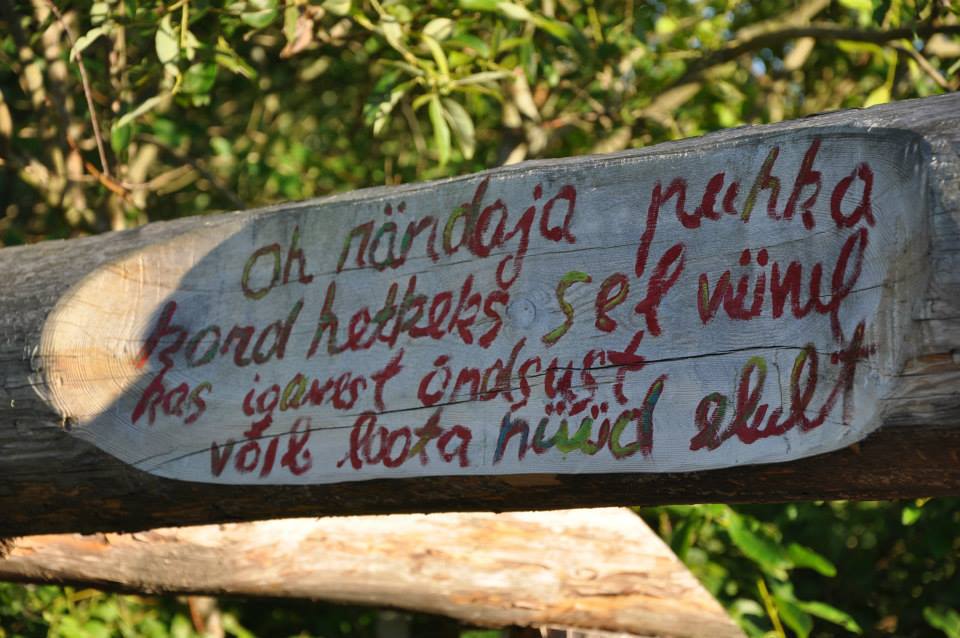 Oh rändaja puhka
kord hetkeks sel viivul
kas igavest õndsust
võib loota nüüd elult